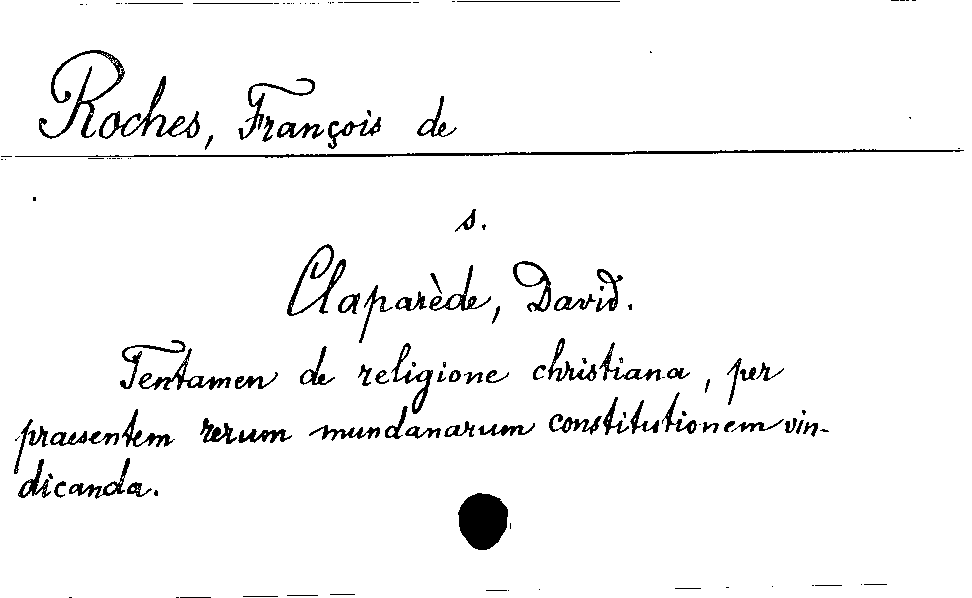 Roches, François de
s.
Claparède, David.
Tentamen de religione christiana, per
praesentem rerum mundanarum constitutionem vin-
dicanda.